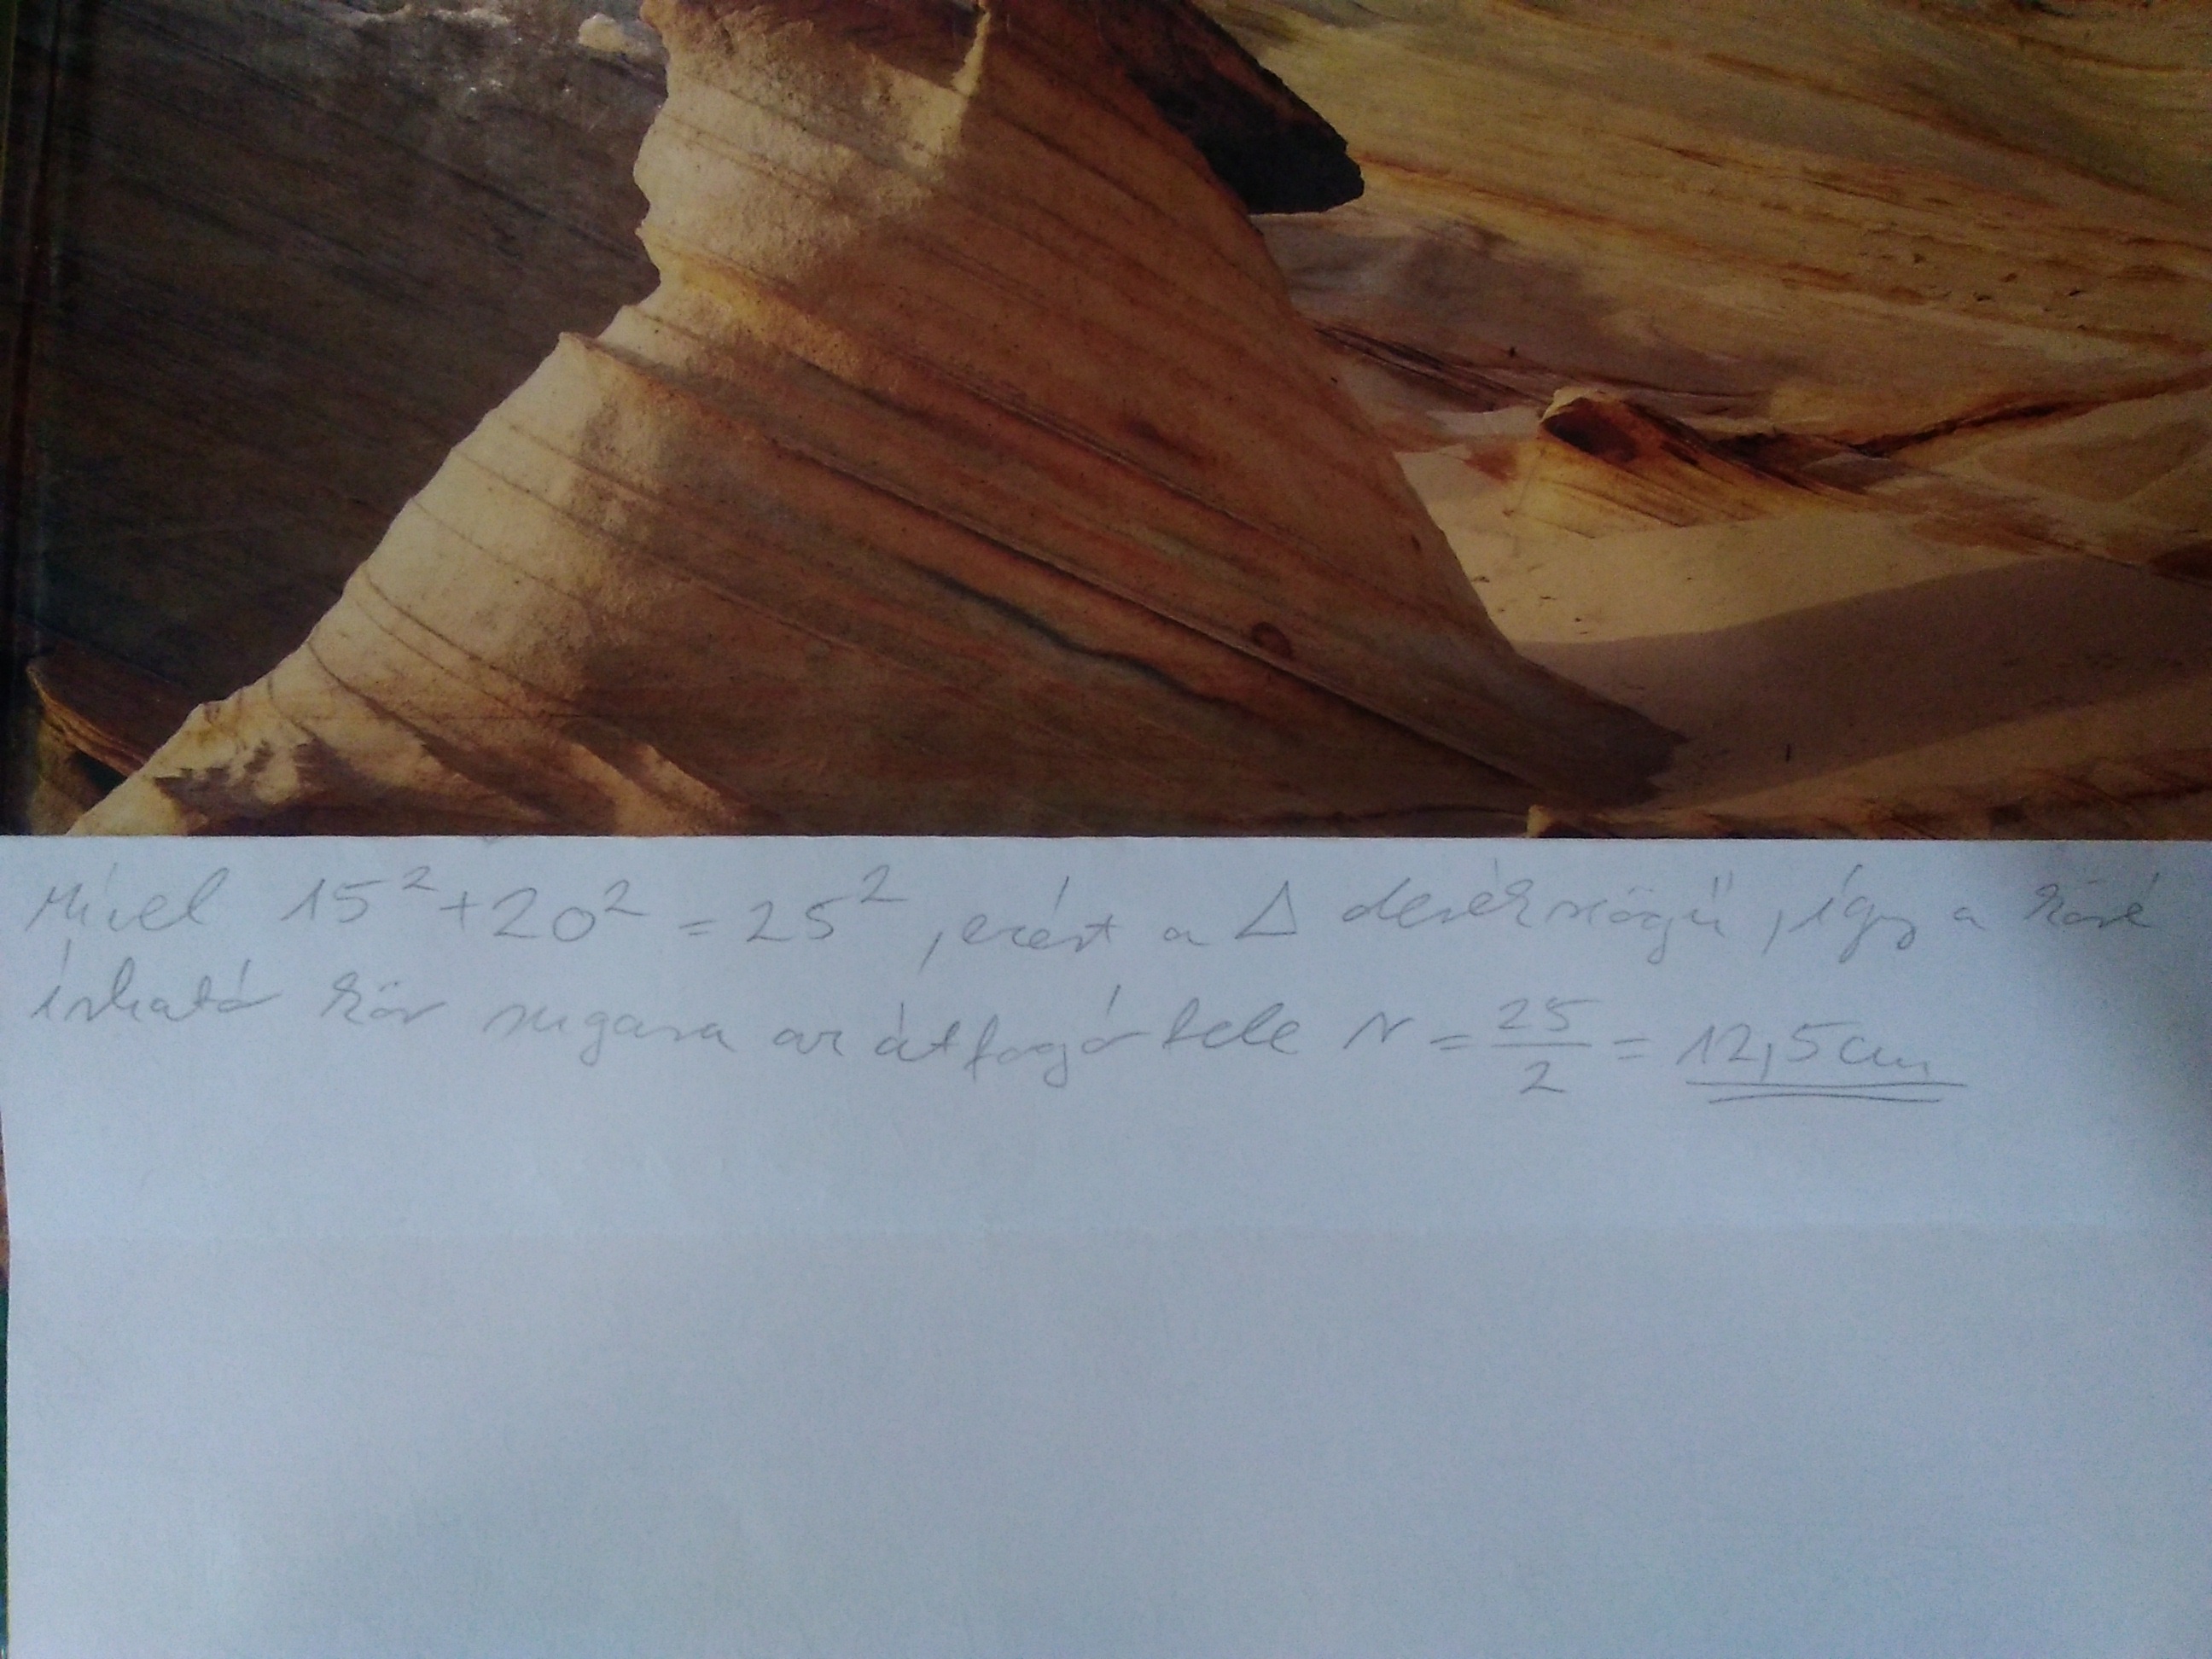 Mivel 15² + 20² = 25², ezért a Δ derékszögű, így a köré
írható kör sugara az átfogó fele r = 25/2 = 12,5 cm